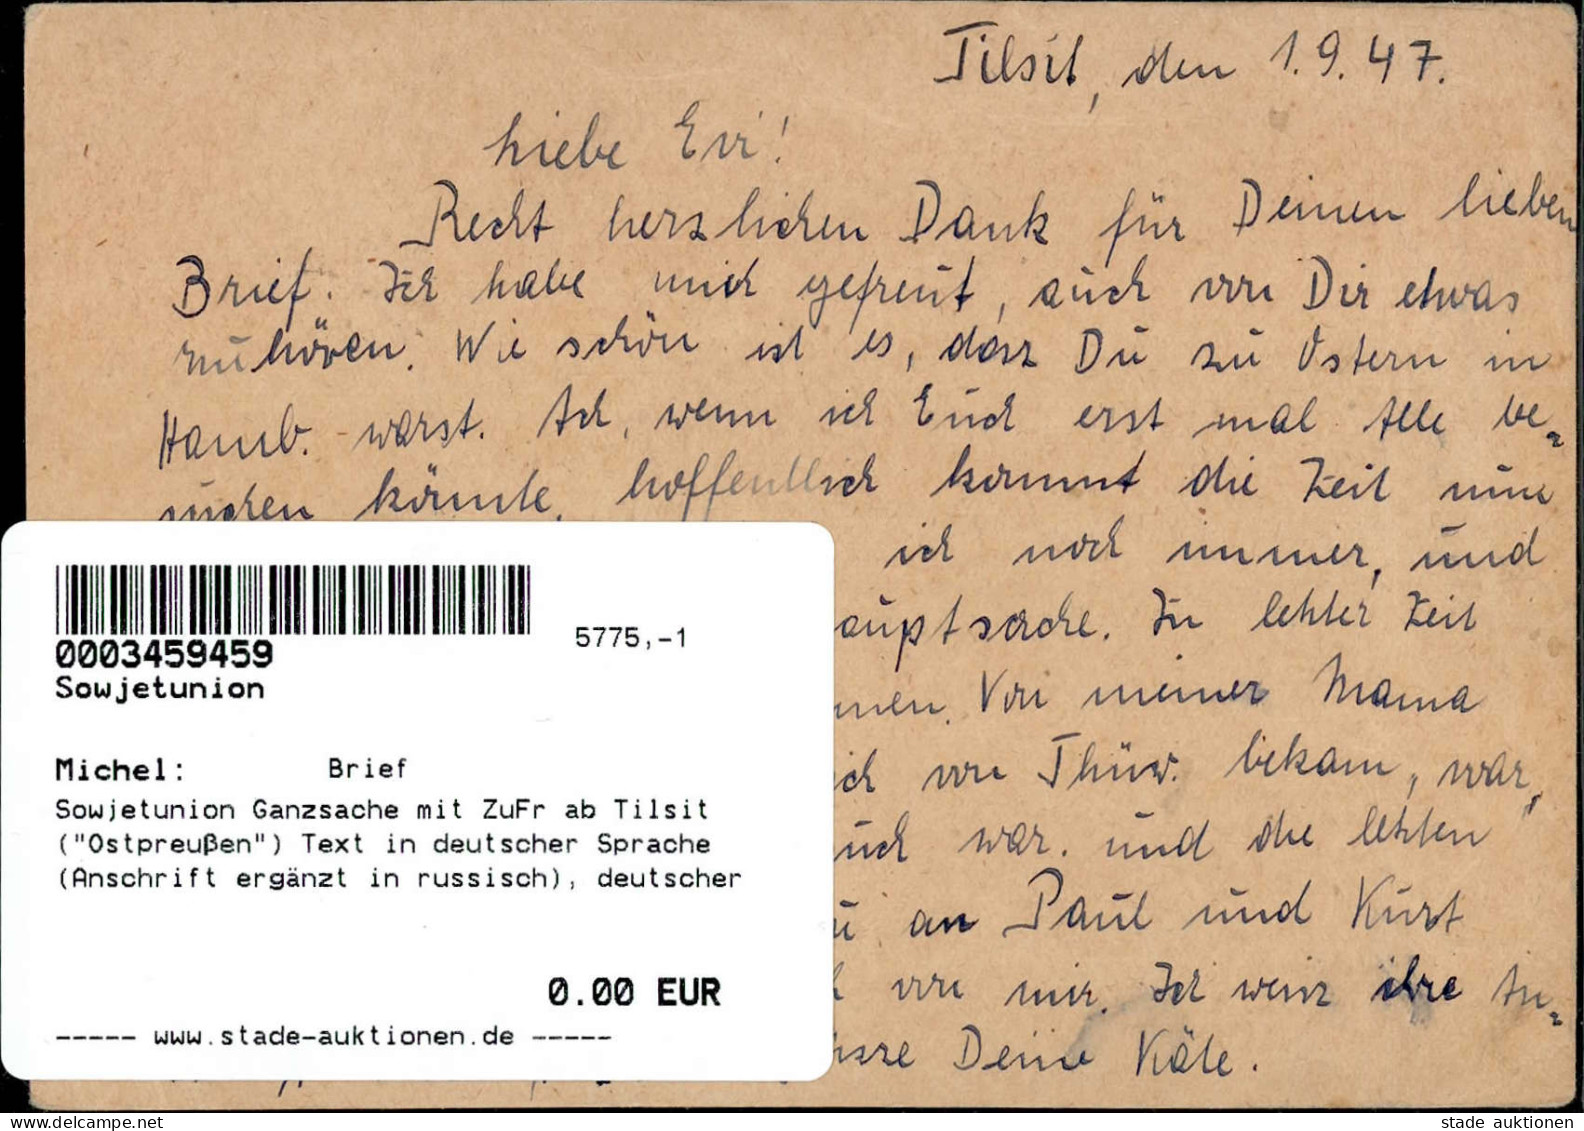 Tilsit, den 1.9.47.
Liebe Evi!
Recht herzlichen Dank für Deinen lieben
Brief. Ich habe mich gefreut, auch von Dir etwas
zuhören. Wie schön ist es, dasz Du zu Ostern in
Hamb. warst. Ach, wenn ich Euch erst mal Alle be-
suchen könnte, hoffentlich kommt die Zeit nun
ich noch immer, und
auptsache. In letzter Zeit
men. Von meiner Mama
ich von Thür. bekam, war,
uch war. und die letzten
an Paul und Kurt
von mir. Ich weisz ihre An-
Deine Käte.
0003459459
5775,-1
Sowjetunion
Michel: Brief
Sowjetunion Ganzsache mit ZuFr ab Tilsit
("Ostpreußen") Text in deutscher Sprache
(Anschrift ergänzt in russisch), deutscher
0.00 EUR
----- www.stade-auktionen.de -----
stade auktionen